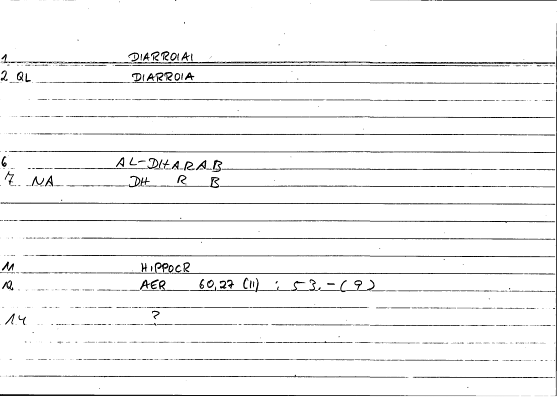 1 DIARROIAI
2 QL DIARROIA
6 AL-DHARAB
7 NA DH R B
11 HIPPOCR
12 AER 60,27 (11) : 53,-(9)
14 ?